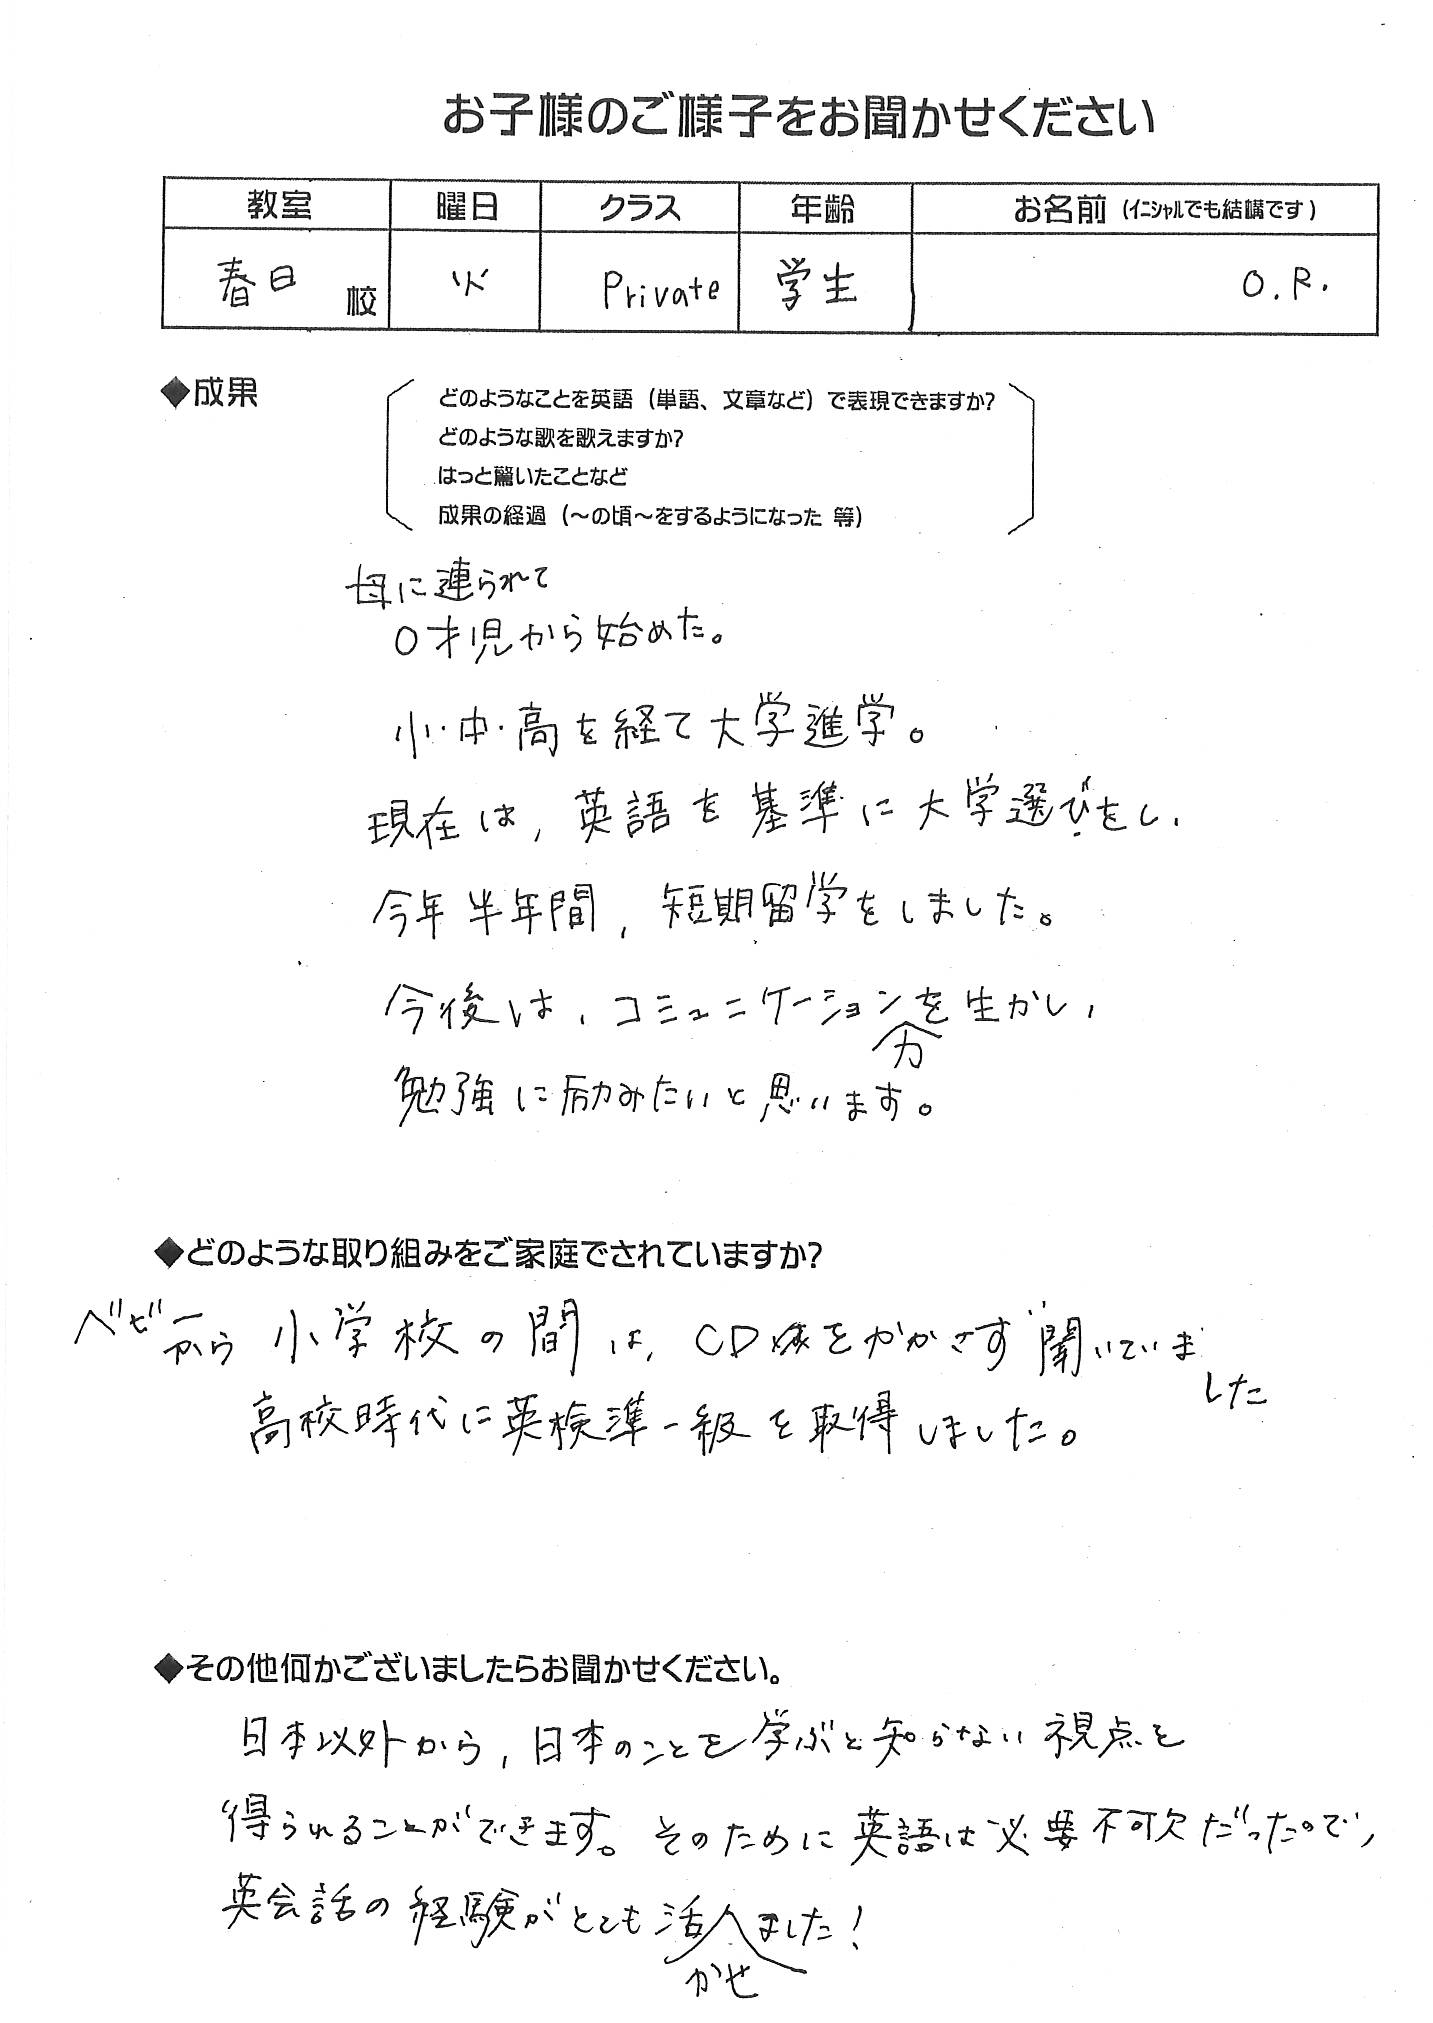 お子様のご様子をお聞かせください
教室 曜日 クラス 年齢 お名前（イニシャルでも結構です）
春日 校 火 Private 学生 O.R.
◆成果
どのようなことを英語（単語、文章など）で表現できますか?
どのような歌を歌えますか?
はっと驚いたことなど
成果の経過（～の頃～をするようになった 等）
母に連られて
0才児から始めた。
小・中・高を経て大学進学。
現在は、英語を基準に大学選びをし、
今年半年間、短期留学をしました。
今後は、コミュニケーション力を生かし、
勉強に励みたいと思います。
◆どのような取り組みをご家庭でされていますか?
ベビーから小学校の間は、CDをかかさず聞いていました
高校時代に英検準一級を取得しました。
◆その他何かございましたらお聞かせください。
日本以外から、日本のことを学ぶと知らない視点を
得られることができます。そのために英語は必要不可欠だったので、
英会話の経験がとても活かせました！